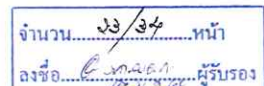 จำนวน 33/34 หน้า
ลงชื่อ ผู้รับรอง